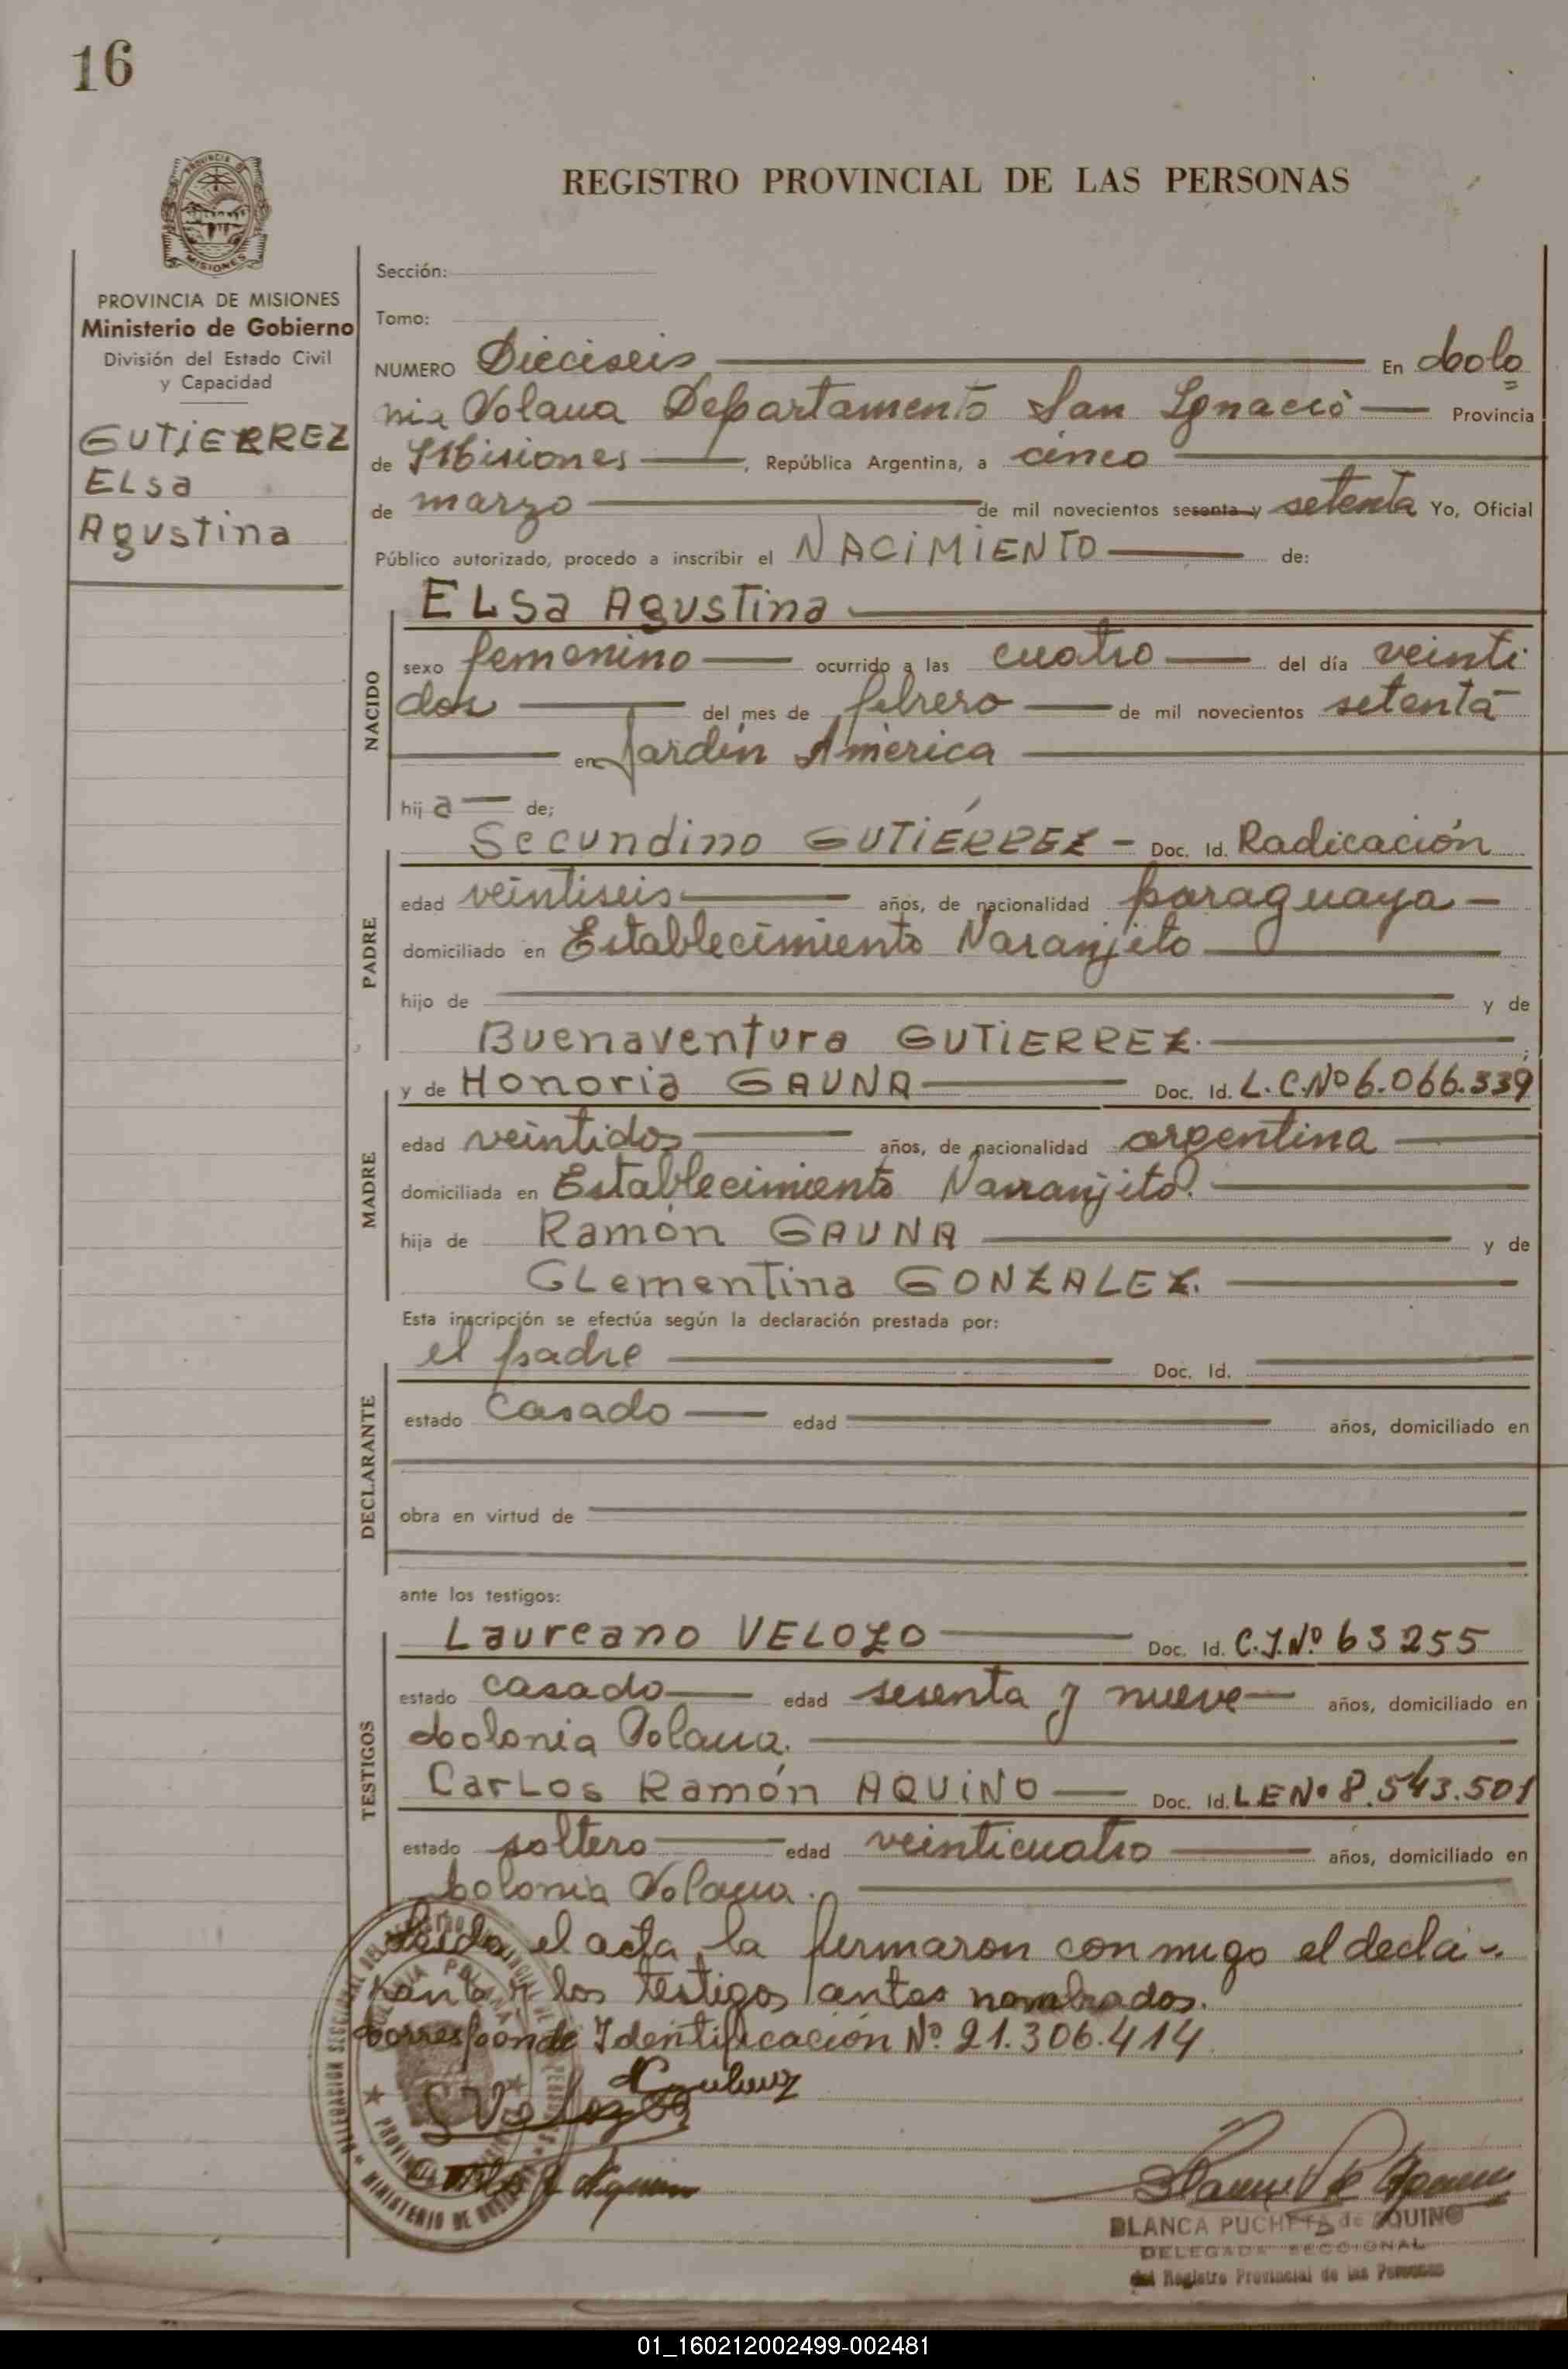 16
REGISTRO PROVINCIAL DE LAS PERSONAS
PROVINCIA DE
MISIONES
PROVINCIA DE MISIONES
Ministerio de Gobierno
División del Estado Civil
y Capacidad
GUTIERREZ
ELsa
Agustina
Sección:
Tomo:
NUMERO Dieciseis En Colo
nia Polana Departamento San Ignacio Provincia
de Misiones, República Argentina, a cinco
de marzo de mil novecientos sesenta y setenta Yo, Oficial
Público autorizado, procedo a inscribir el NACIMIENTO de:
NACIDO
ELsa Agustina
sexo femenino ocurrido a las cuatro del día veinti
dos del mes de febrero de mil novecientos setenta
en Jardín América
hij a de;
PADRE
Secundino GUTIÉRREZ - Doc. Id. Radicación
edad veintiseis años, de nacionalidad paraguaya
domiciliado en Establecimiento Naranjito
hijo de y de
Buenaventura GUTIERREZ.
MADRE
y de Honoria GAUNA Doc. Id. L.C.Nº 6.066.339
edad veintidos años, de nacionalidad argentina
domiciliada en Establecimiento Naranjito.
hija de Ramón GAUNA y de
CLementina GONZALEZ.
Esta inscripción se efectúa según la declaración prestada por:
DECLARANTE
el padre Doc. Id.
estado Casado edad años, domiciliado en
obra en virtud de
ante los testigos:
TESTIGOS
Laureano VELOZO Doc. Id. C.I.Nº 63255
estado casado edad sesenta y nueve años, domiciliado en
Colonia Polana.
CarLos Ramón AQUINO Doc. Id. LENº 8.543.501
estado soltero edad veinticuatro años, domiciliado en
Colonia Polana.
Leida el acta, la firmaron con migo el decla-
rante y los testigos antes nombrados.
Corresponde Identificación Nº 21.306.414
BLANCA PUCHETA de AQUINO
DELEGADA SECCIONAL
del Registro Provincial de las Personas
01_160212002499-002481